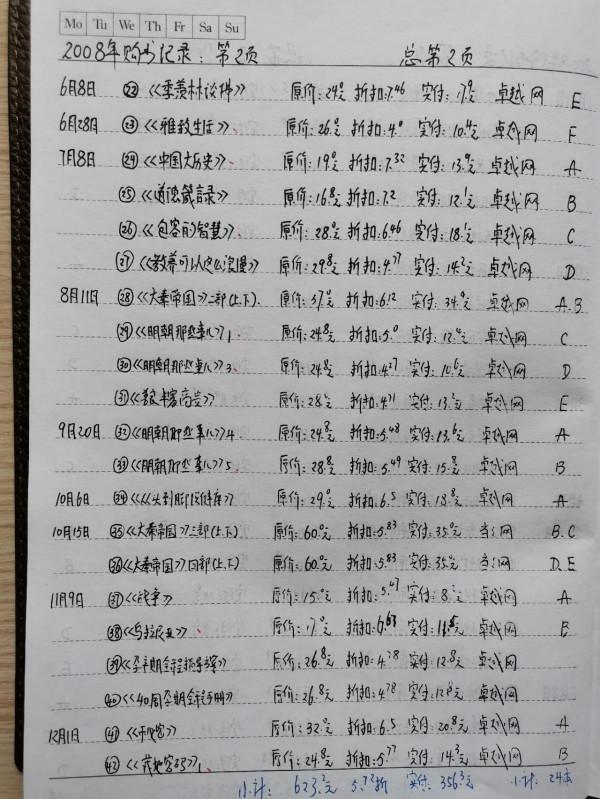 Mo Tu We Th Fr Sa Su
2008年购书记录：第2页 总第2页
6月8日 ㉒《季羡林谈佛》 原价:24.0元 折扣:7.46 实付:17.9元 卓越网 E
6月28日 ㉓《雅致生活》、 原价:26.0元 折扣:4.0 实付:10.4元 卓越网 F
7月8日 ㉔《中国大历史》、 原价:19.0元 折扣:7.32 实付:13.9元 卓越网 A
㉕《道德箴言录》 原价:16.8元 折扣:7.2 实付:12.1元 卓越网 B
㉖《包容的智慧》、 原价:28.0元 折扣:6.46 实付:18.1元 卓越网 C
㉗《教养可以这么浪漫》 原价:29.8元 折扣:4.77 实付:14.2元 卓越网 D
8月11日 ㉘《大秦帝国》二部(上下). 原价:37.0元 折扣:6.12 实付:34.0元 卓越网 A.B
㉙《明朝那些事儿》1. 原价:24.8元 折扣:5.0 实付:12.4元 卓越网 C
㉚《明朝那些事儿》3. 原价:24.8元 折扣:4.27 实付:10.6元 卓越网 D
㉛ 原价:28.0元 折扣:4.71 实付:13.2元 卓越网 E
9月20日 ㉜《明朝那些事儿》4. 原价:24.8元 折扣:5.48 实付:13.6元 卓越网 A
㉝《明朝那些事儿》5. 原价:28.8元 折扣:5.49 实付:15.8元 卓越网 B
10月6日 ㉞《从头到脚 原价:29.0元 折扣:6.5 实付:18.8元 卓越网 A
10月15日 ㉟《大秦帝国》三部(上.下) 原价:60.0元 折扣:5.83 实付:35.0元 当当网 B.C
㊱《大秦帝国》四部(上.下) 原价:60.0元 折扣:5.83 实付:35.0元 当当网 D.E
11月9日 ㊲《战争》 原价:15.0元 折扣:5.47 实付:8.2元 卓越网 A
㊳《乌拉尼亚》、 原价:17.0元 折扣:6.68 实付: 卓越网 B
㊴《孕产期全程指导 原价:26.8元 折扣:4.78 实付:12.8元 卓越网
㊵《40周孕期全程手册》 原价:26.8元 折扣:4.78 实付:12.8元 卓越网
12月1日 ㊶ 原价:32.0元 折扣:6.5 实付:20.8元 卓越网 A
㊷《藏地密码》1. 原价:24.8元 折扣:5.77 实付:14.3元 卓越网 B
小计: 623.2元 5.72折 实付:356.3元 小计:24本